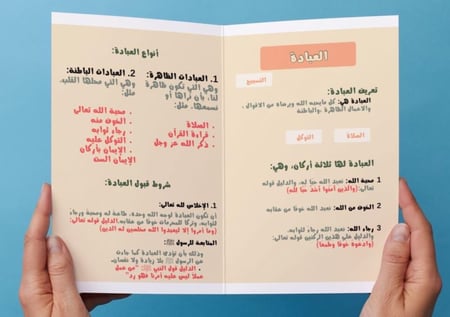 العبادة
التسبيح
تعريف العبادة:
العبادة هي: كل مايحبه الله ويرضاه من الاقوال
والاعمال الظاهرة والباطنة.
الصلاة
التوكل
العبادة لها ثلاثة أركان، وهي:
1 محبة الله: نعبد الله حبًا له، والدليل قوله
تعالى:(والذين آمنوا أشد حبًا لله)
2 الخوف من الله: نعبد الله خوفا من عقابه
3 رجاء الله: نعبد الله رجاء ثوابه
والدليل على هذين الركنين قوله تعالى:
(وادعوه خوفا وطمعا)
أنواع العبادة:
1. العبادات الظاهرة:
وهي التي تكون ظاهرة
لنا، بأن نراها أو
نسمعها. مثل:
• الصلاة
• قراءة القرآن
• ذكر الله عز وجل
2. العبادات الباطنة:
وهي التي محلها القلب.
مثل:
• محبة الله تعالى
• الخوف منه
• رجاء ثوابه
• التوكل عليه
• الإيمان بأركان
الإيمان الست
شروط قبول العبادة:
1. الإخلاص لله تعالى:
أن تكون العبادة لوجه الله وحده، طاعة له ومحبة ورجاء
ثوابه، وتركا للمحرمات خوفا من عقابه.
(وما أمروا إلا ليعبدوا الله مخلصين له الدين)
المتابعة للرسول ﷺ:
وذلك بأن نؤدي العبادة كما جاءت
عن الرسول ﷺ بلا زيادة ولا نقصان.
• الدليل قول النبي ﷺ: "من عمل
عملا ليس عليه أمرنا فهو رد"